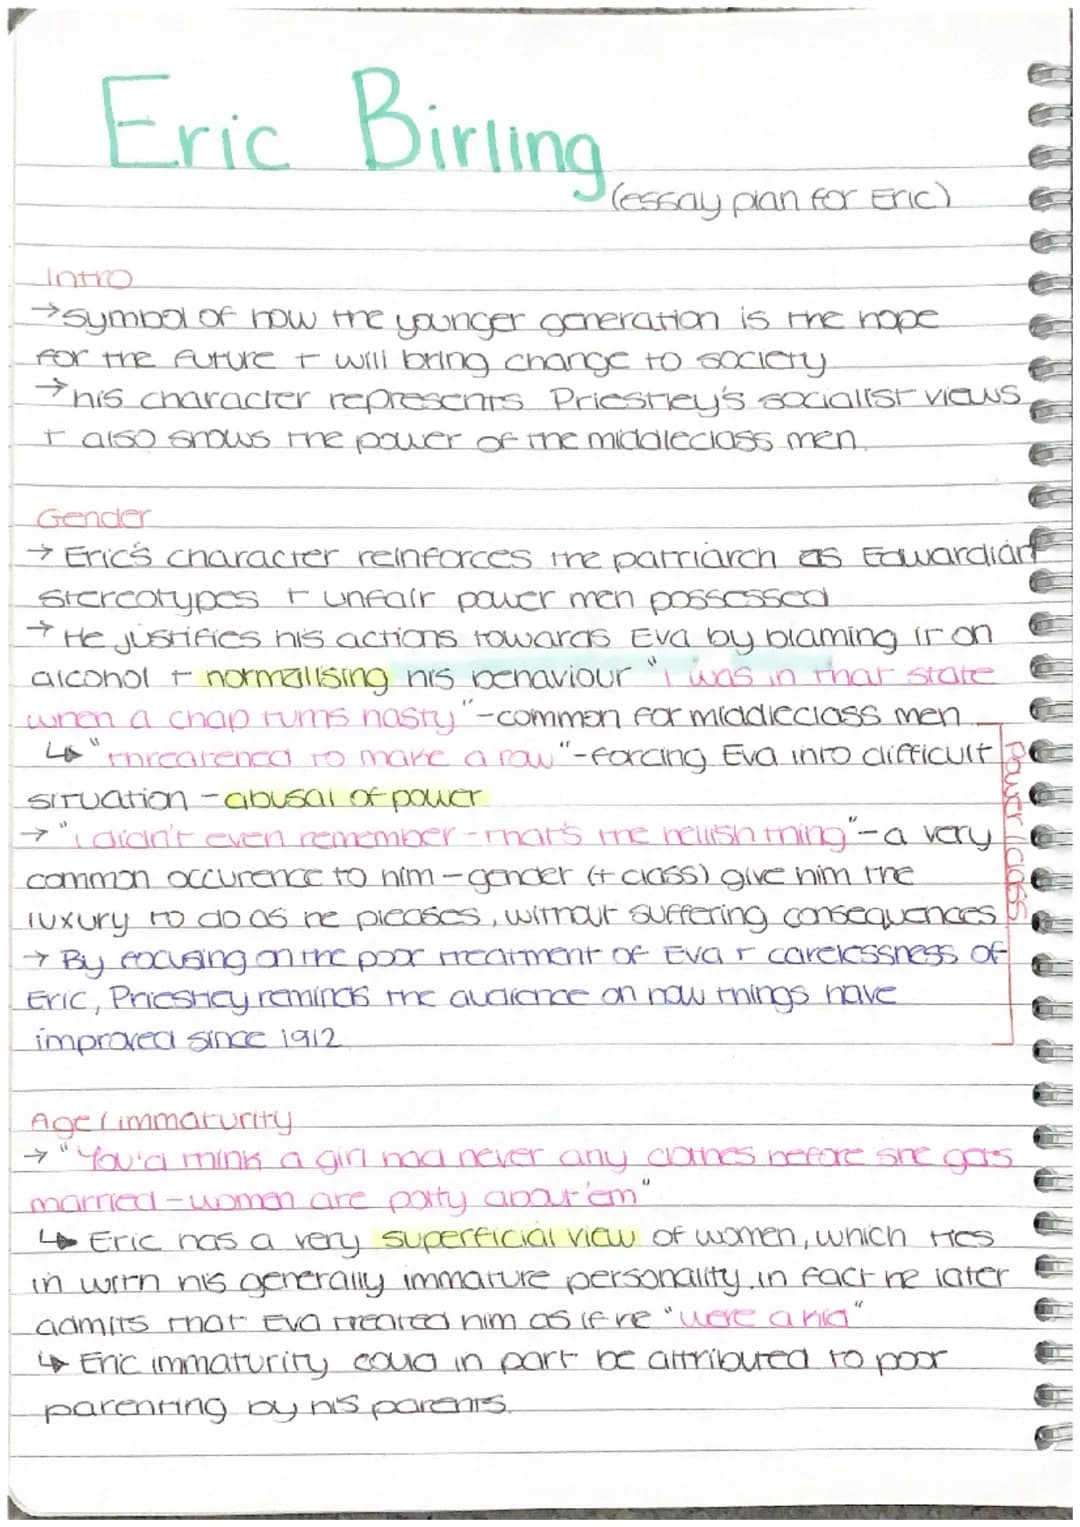 Eric Birling
(essay plan for Eric)
Intro
→ symbol of how the younger generation is the hope
for the future + will bring change to society
→ his character represents Priestley's socialist views
+ also shows the power of the middleclass men.
Gender
→ Eric's character reinforces the patriarch as Edwardian
stereotypes + unfair power men possessed
→ He justifies his actions towards Eva by blaming it on
alcohol + normalising his behaviour "i was in that state
when a chap turns nasty" - common for middleclass men
↳ "threatened to make a row" - forcing Eva into difficult
situation - abusal of power
→ "i didn't even remember - that's the hellish thing" - a very
common occurence to him - gender (+ class) give him the
luxury to do as he pleases, without suffering consequences
Power/class
→ By focusing on the poor treatment of Eva + carelessness of
Eric, Priestley reminds the audience on how things have
improved since 1912
Age/immaturity
→ "You'd think a girl had never any clothes before she gets
married - women are potty about 'em"
↳ Eric has a very superficial view of women, which ties
in with his generally immature personality. in fact he later
admits that Eva treated him as if he "were a kid"
↳ Eric immaturity could in part be attributed to poor
parenting by his parents.